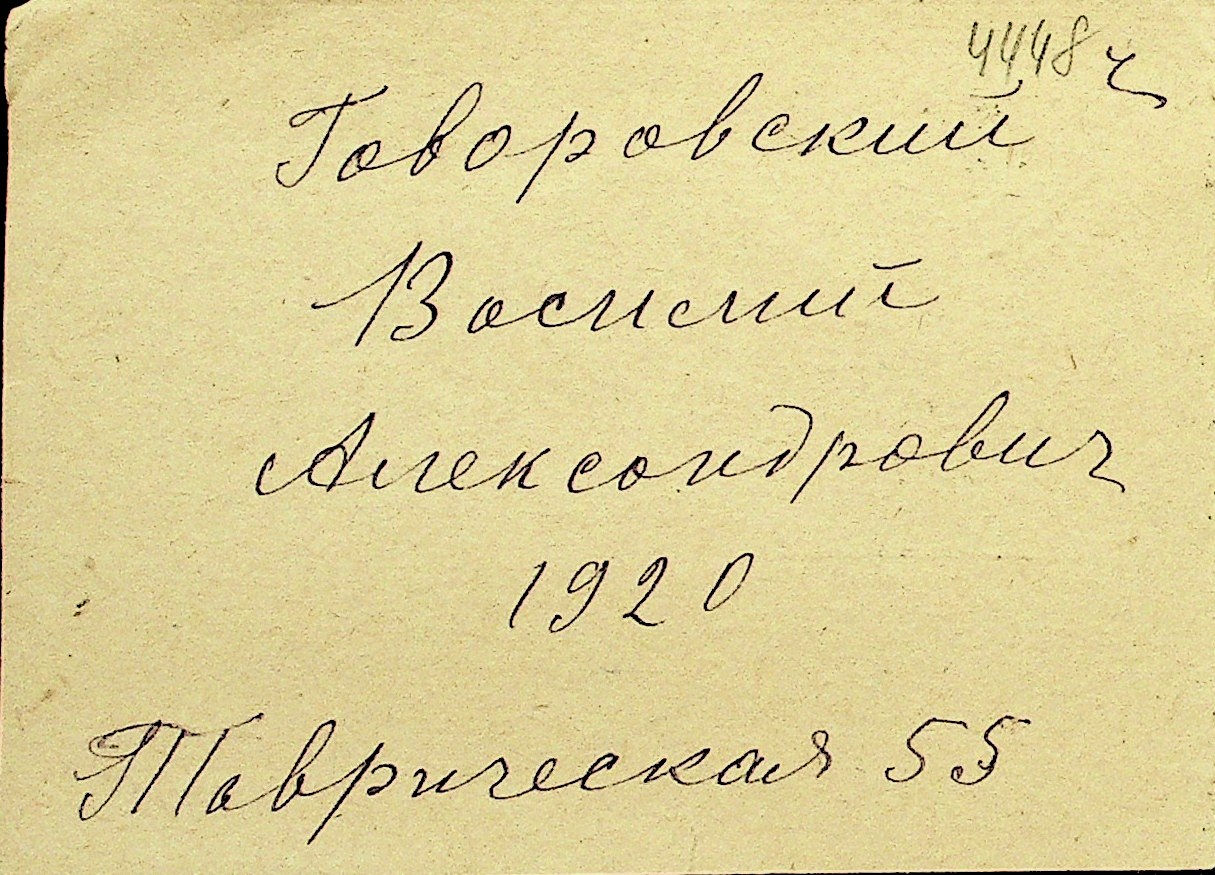 4448 ч
Говоровский
Василий
Александрович
1920
Таврическая 55